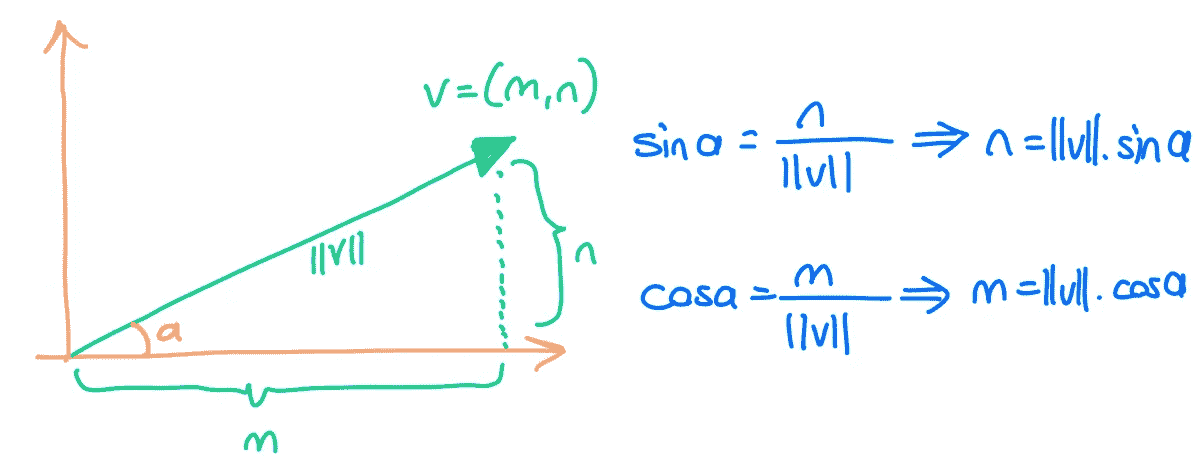 v=(m,n)
||v||
n
a
m
sin a = n / ||v|| ⇒ n = ||v||. sin a
cos a = m / ||v|| ⇒ m = ||v||. cos a